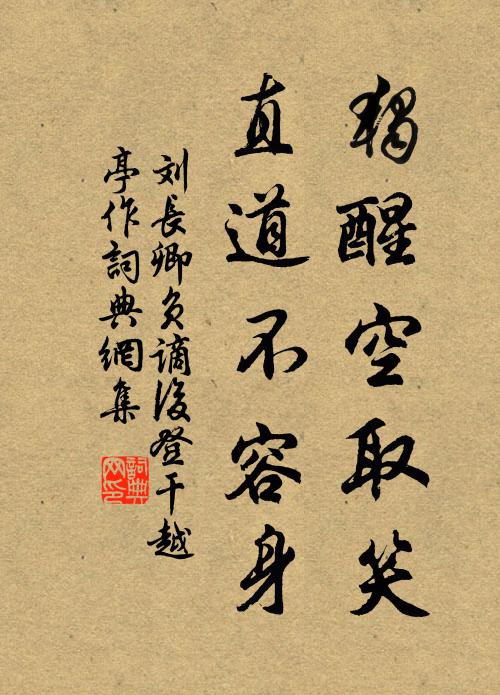 獨醒空取笑
直道不容身
刘長卿負謫後登干越
亭作詞典網集
詞典網印